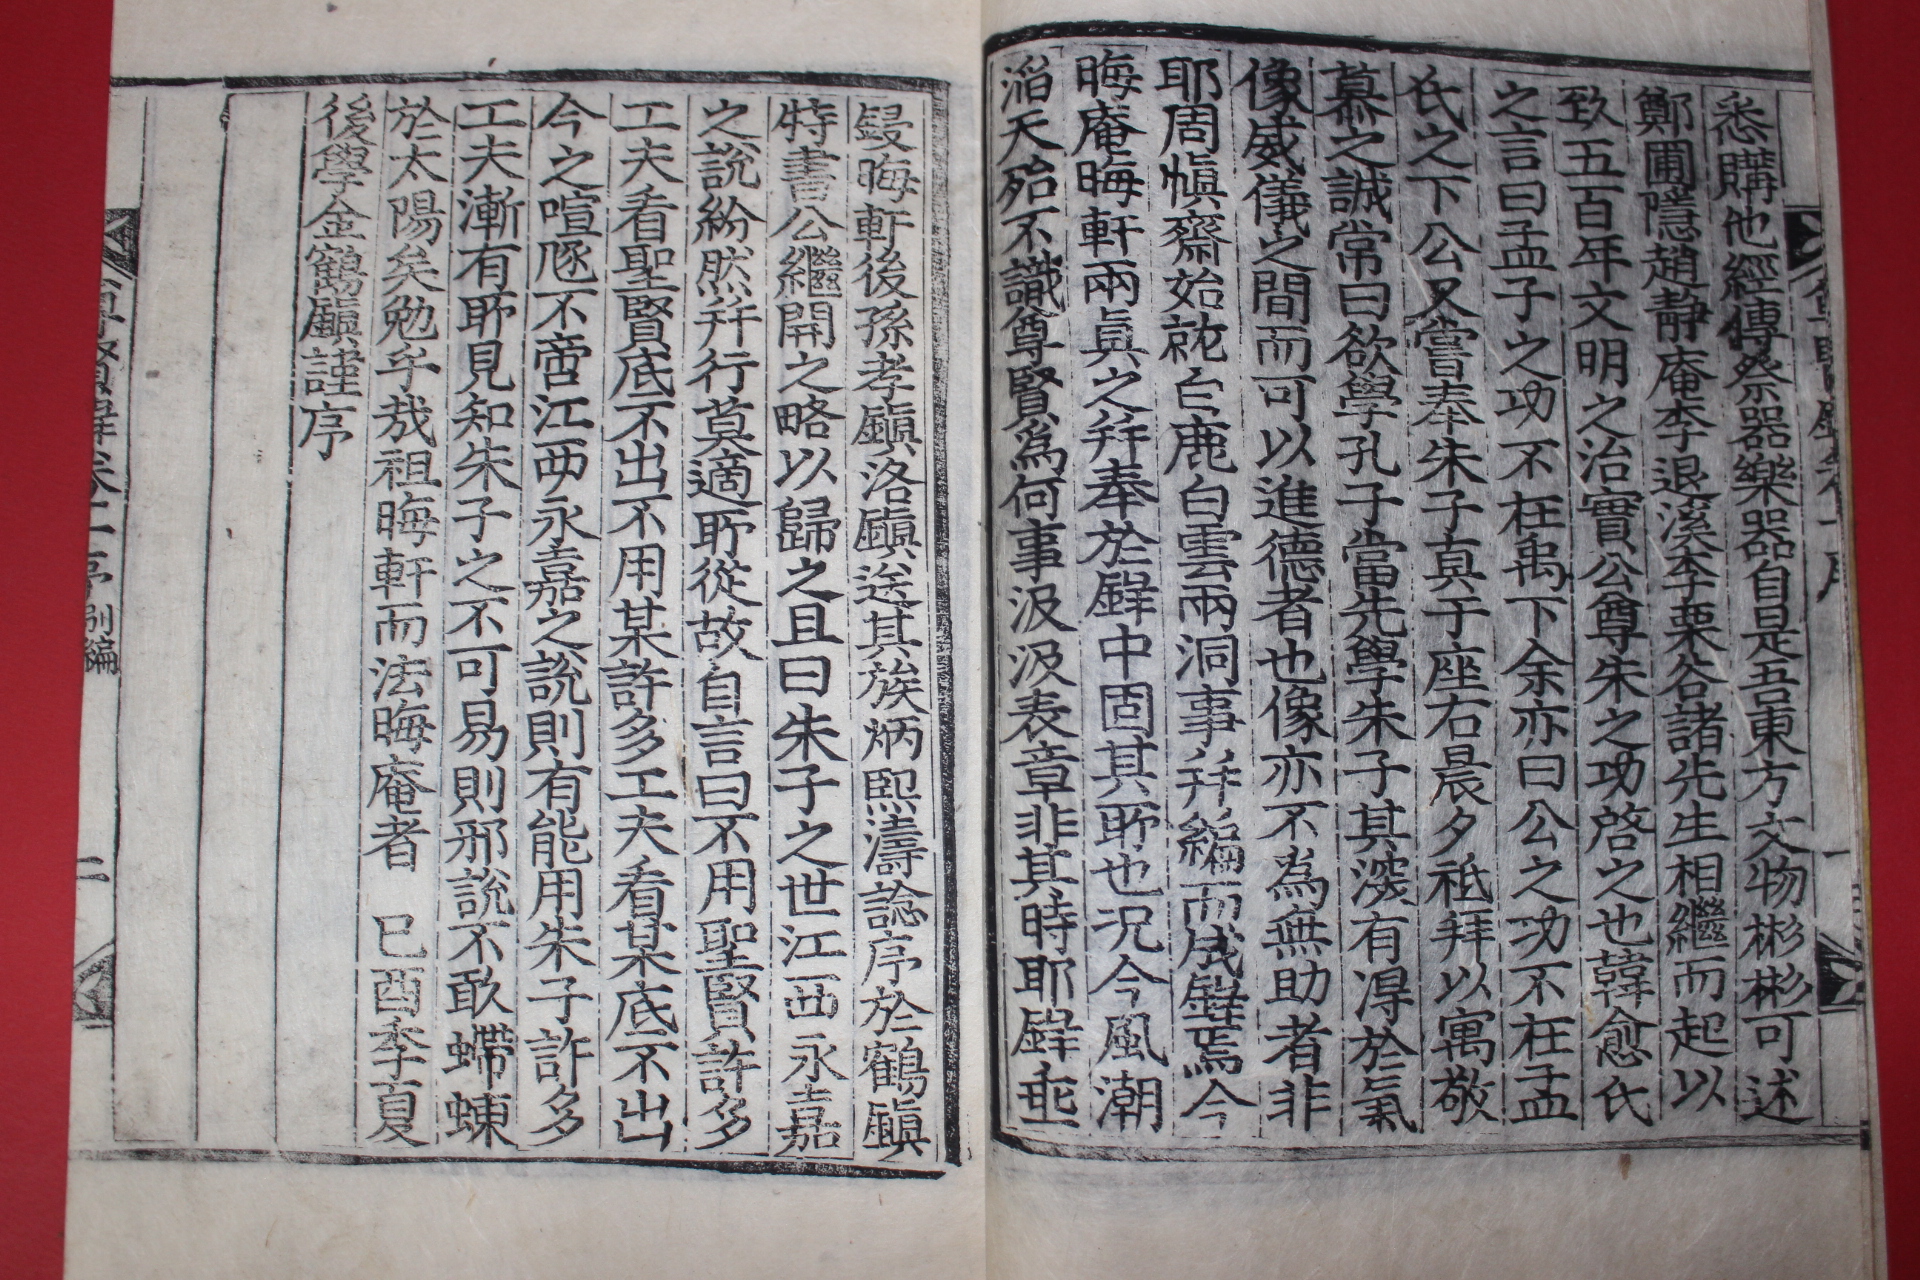 悉購他經傳祭器樂器自是吾東方文物彬彬可述
鄭圃隱趙靜庵李退溪李栗谷諸先生相繼而起以
致五百年文明之治實公尊朱之功啓之也韓愈氏
之言曰孟子之功不在禹下余亦曰公之功不在孟
氏之下公又嘗奉朱子真于座右晨夕祗拜以寓敬
慕之誠常曰欲學孔子當先學朱子其深有得於氣
像威儀之間而可以進德者也像亦不為無助者非
耶周愼齋始就白鹿白雲兩洞事幷編而成錄焉今
晦庵晦軒兩眞之幷奉於錄中固其所也況今風潮
滔天殆不識尊賢爲何事汲汲表章非其時耶錄垂
鋟晦軒後孫孝鎭洛鎭送其族炳熙濤諗序於鶴鎭
特書公繼開之略以歸之且曰朱子之世江西永嘉
之說紛然幷行莫適所從故自言曰不用聖賢許多
工夫看聖賢底不出不用某許多工夫看某底不出
今之喧豗不啻江西永嘉之說則有能用朱子許多
工夫漸有所見知朱子之不可易則邪說不敢螮蝀
於太陽矣勉乎哉祖晦軒而法晦庵者 己酉季夏
後學金鶴鎭謹序
尊賢錄卷二序 別編
二